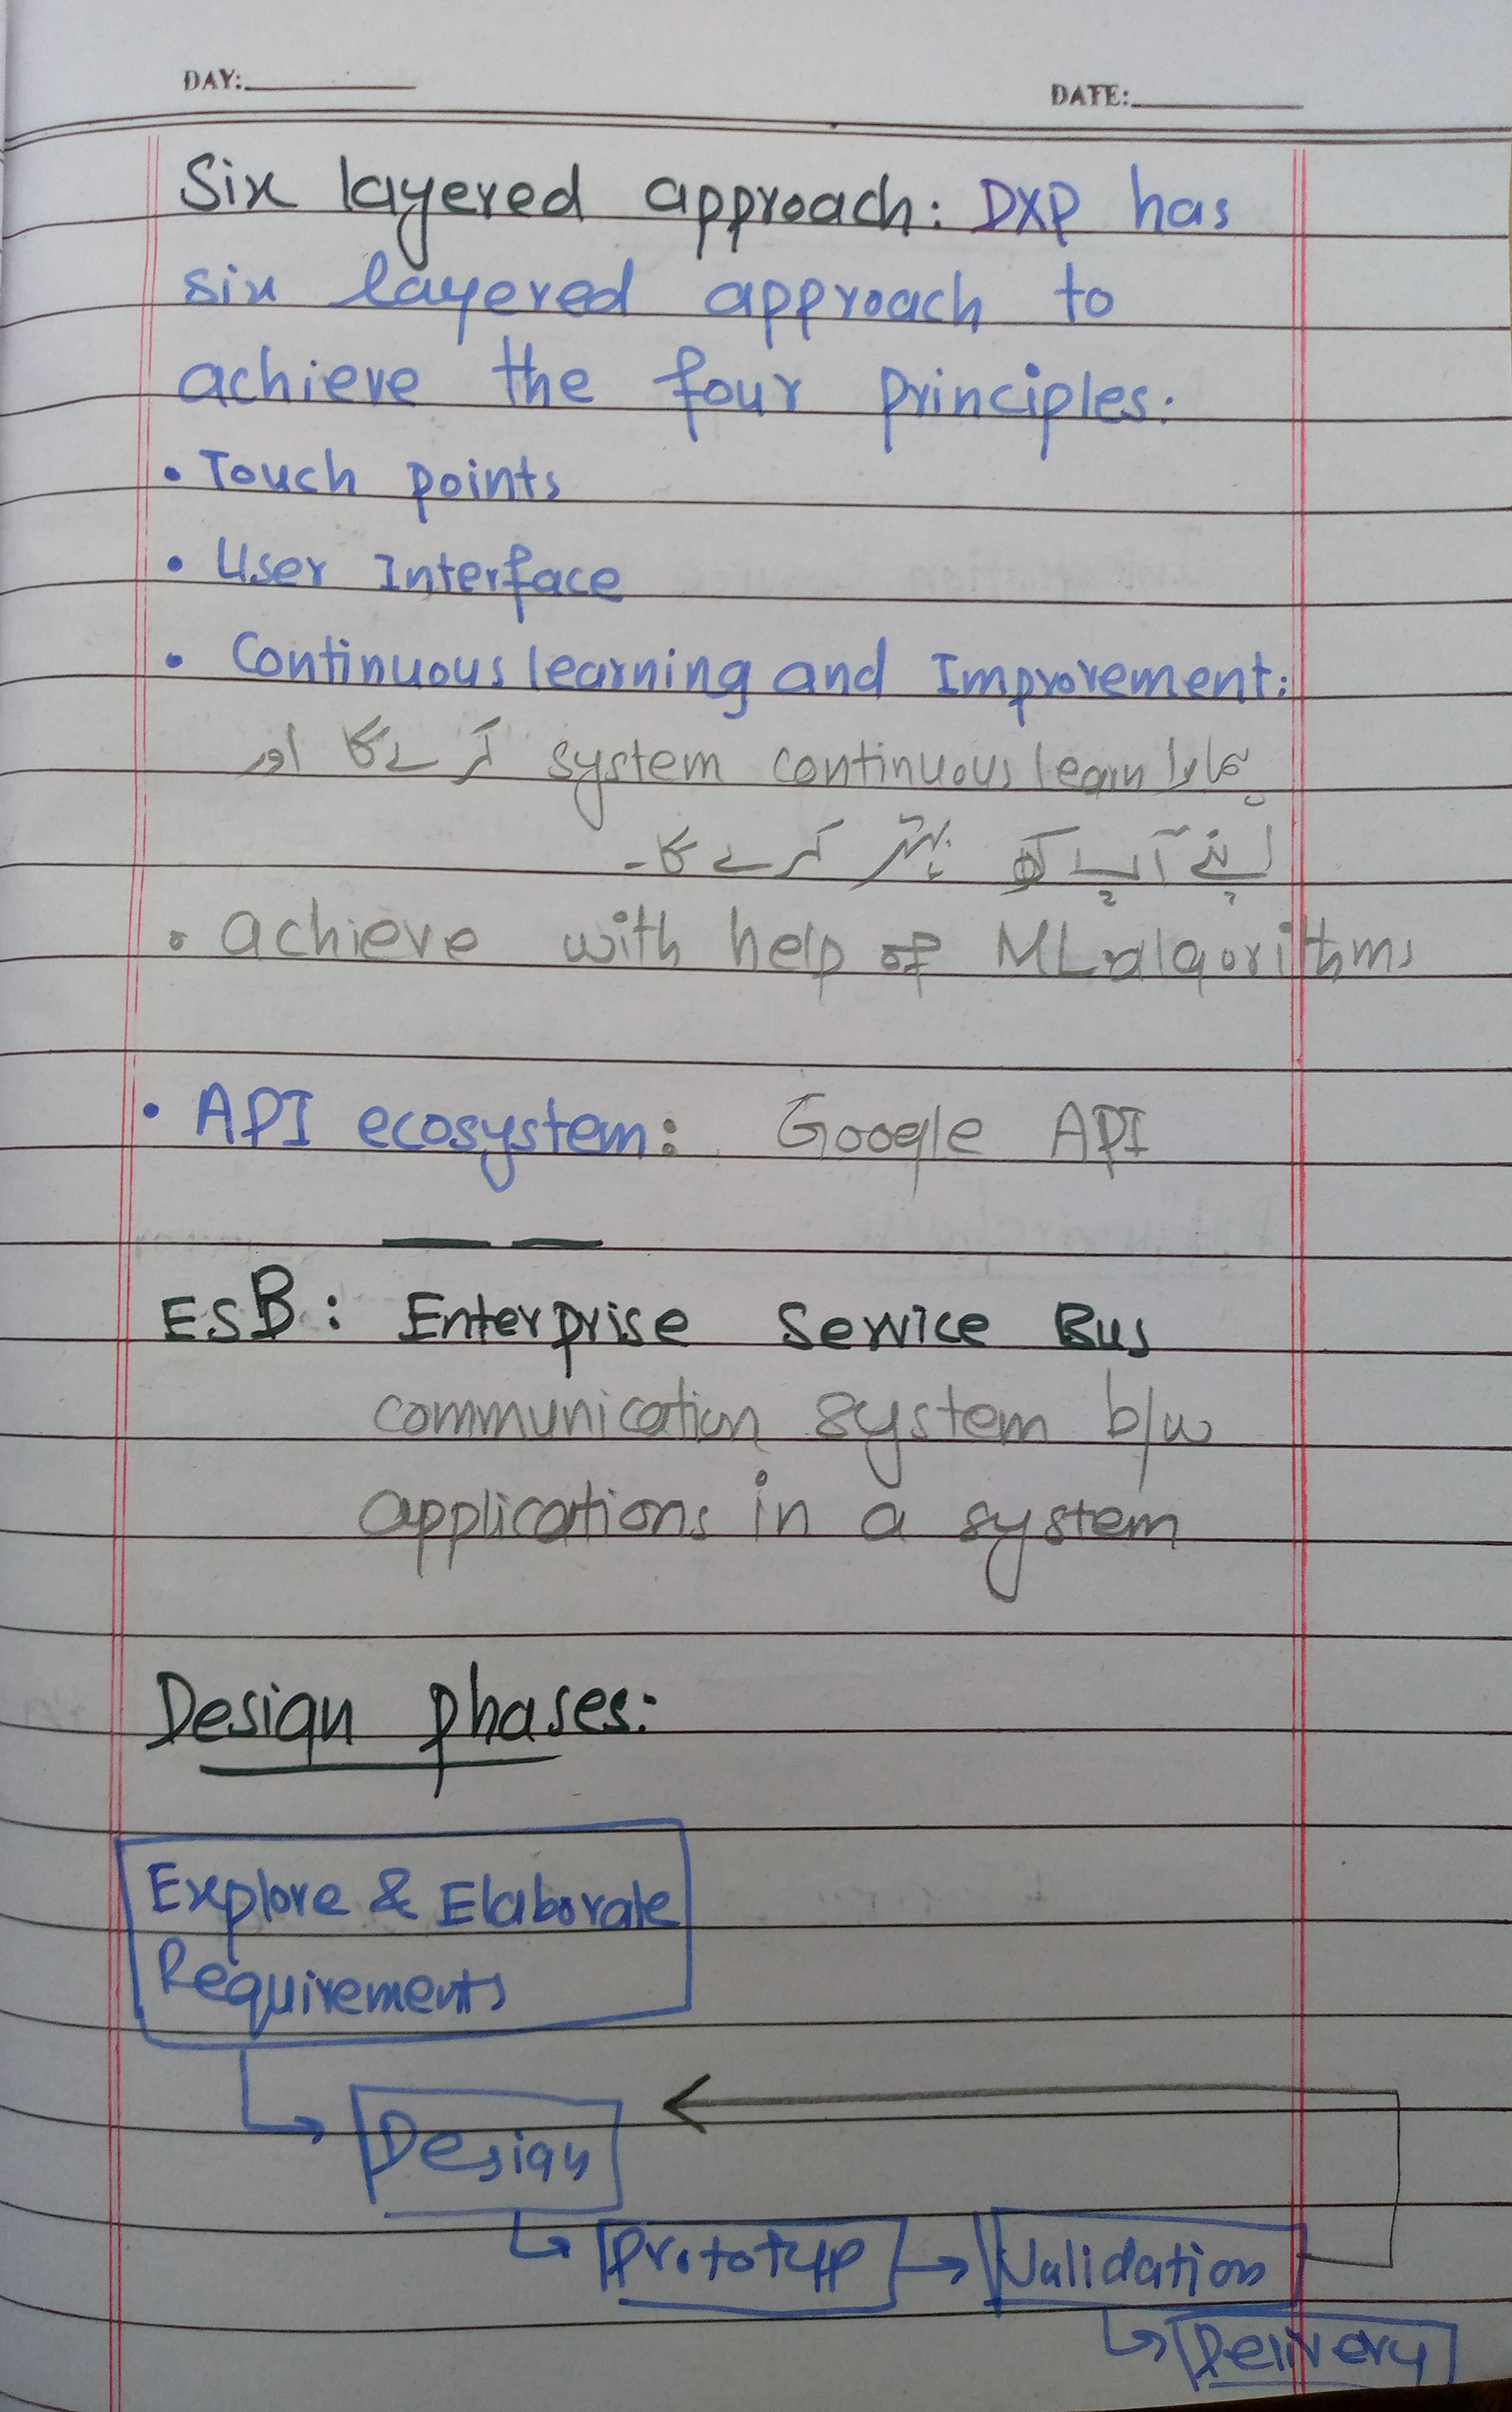 DAY:
DATE:
Six layered approach: DXP has
six layered approach to
achieve the four principles.
• Touch points
• User Interface
• Continuous learning and Improvement:
ہمارا system continuous learn کرے گا اور
اپنے آپ کو بہتر کرے گا۔
• achieve with help of ML algorithms
• API ecosystem: Google API
ESB: Enterprise Service Bus
communication system b/w
applications in a system
Design phases:
Explore & Elaborate
Requirements
Design
Prototyp
Validation
Delivery